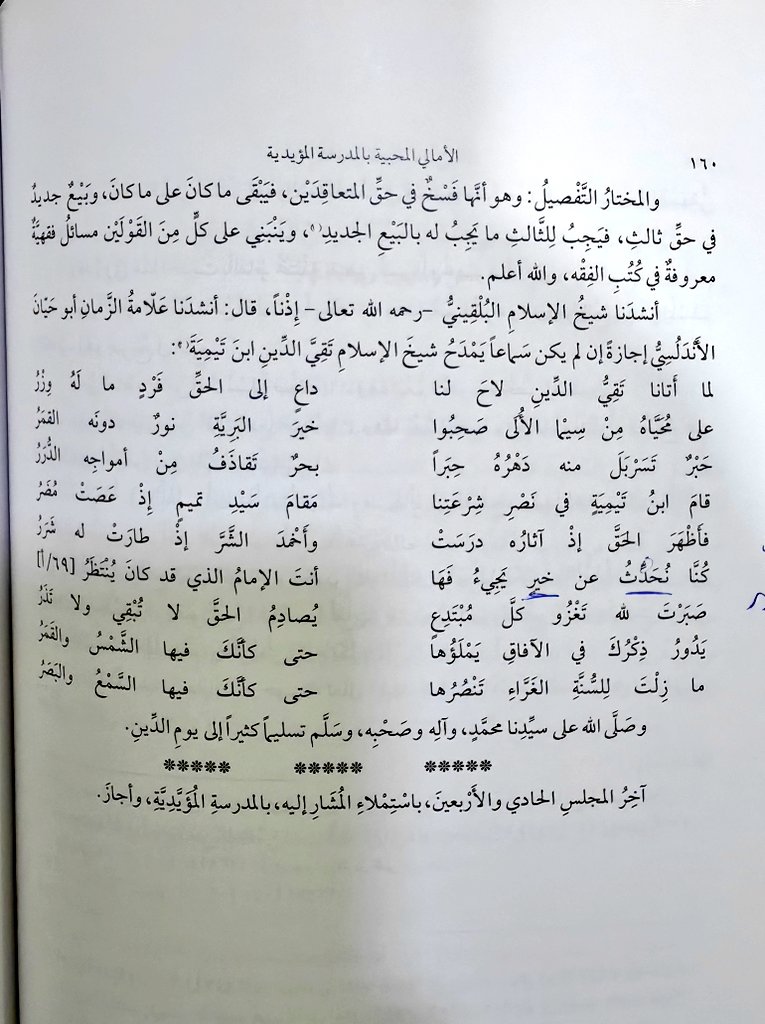 ١٦٠ الأمالي المحبية بالمدرسة المؤيدية
والمختارُ التَّفْصيلُ: وهو أنَّها فَسْخٌ في حقِّ المتعاقِدَيْن، فيَبْقَى ما كانَ على ما كانَ، وبَيْعٌ جديدٌ
في حقِّ ثالثِ، فيَجِبُ لِلثَّالثِ ما يَجِبُ له بالبَيْعِ الجديدِ(١)، ويَنْبَنِي على كلٍّ مِنَ القَوْلَيْن مسائلُ فقهيَّةٌ
معروفةٌ في كُتُبِ الفِقْه، والله أعلم.
أنشدَنا شيخُ الإسلامِ البُلْقِينيُّ –رحمه الله تعالى– إِذْناً، قال: أنشدَنا عَلّامةُ الزَّمانِ أبو حَيّانَ
الأَنْدَلُسِيُّ إجازةً إن لم يكن سَماعاً يَمْدَحُ شيخَ الإسلامِ تَقِيَّ الدِّينِ ابنَ تَيْمِيَةَ(٢):
لما أتانا تَقِيُّ الدِّينِ لاحَ لنا داعٍ إلى الحقِّ فَرْدٍ ما لَهُ وِزْرُ
على مُحَيَّاهُ مِنْ سِيْما الأُلَى صَحِبُوا خيرَ البَرِيَّةِ نورٌ دونَه القمَرُ
حَبْرٌ تَسَرْبَلَ منه دَهْرُهُ حِبَراً بحرٌ تَقاذَفُ مِنْ أمواجِه الدُّرَرُ
قامَ ابنُ تَيْمِيَةٍ في نَصْرِ شِرْعَتِنا مَقامَ سَيْدِ تميمٍ إِذْ عَصَتْ مُضَرُ
فأَظْهَرَ الحَقَّ إذْ آثارُه دَرَسَتْ وأَخْمدَ الشَّرَّ إذْ طارَتْ له شَرَرُ
كُنَّا نُحَدَّثُ عن خبرٍ يَجِيءُ فَهَا أنتَ الإمامُ الذي قد كانَ يُنْتَظَرُ [٦٩/أ]
صَبَرْتَ لله تَغْزُو كلَّ مُبْتَدِعٍ يُصادِمُ الحقَّ لا تُبْقِي ولا تَذَرُ
يَدُورُ ذِكْرُكَ في الآفاقِ يَمْلَؤُها حتى كأنَّكَ فيها الشَّمْسُ والقَمَرُ
ما زِلْتَ لِلسُّنَّةِ الغَرَّاءِ تَنْصُرُها حتى كأنَّكَ فيها السَّمْعُ والبَصَرُ
وصَلَّى الله على سيِّدِنا محمَّدٍ، وآلِه وصَحْبِه، وسَلَّم تسليماً كثيراً إلى يومِ الدِّينِ.
***** ***** *****
آخِرُ المجلسِ الحادي والأَرْبعينَ، باسْتِمْلاءِ المُشَارِ إليه، بالمدرسةِ المُؤَيَّدِيَّةِ، وأجازَ.